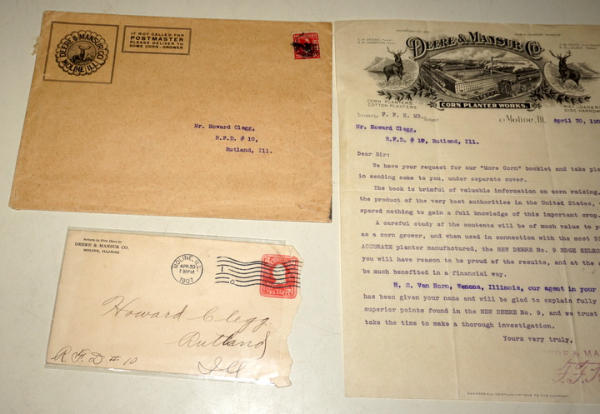 DEERE & MANSUR CO
MOLINE, ILL.
IF NOT CALLED FOR
POSTMASTER
PLEASE DELIVER TO
SOME CORN-GROWER
Mr. Howard Clegg,
R.F.D. # 19,
Rutland, Ill.
DEERE & MANSUR CO.
MOLINE, ILLINOIS
MOLINE, ILL.
APR 30
1907
Howard Clegg
Rutland
Ill
R.F.D # 10
DEERE & MANSUR CO.
CORN PLANTERS
COTTON PLANTERS
CORN PLANTER WORKS
Moline, Ill. April 30, 190
Mr. Howard Clegg,
R.F.D. # 19, Rutland, Ill.
Dear Sir:
We have your request for our "More Corn" booklet and take ple
in sending same to you, under separate cover.
The book is brimful of valuable information on corn raising,
the product of the very best authorities in the United States,
spared nothing to gain a full knowledge of this important crop.
A careful study of the contents will be of much value to
as a corn grower, and when used in connection with the most
ACCURATE planter manufactured, the NEW DEERE No. 9 EDGE SELE
you will have reason to be proud of the results, and at the
be much benefited in a financial way.
H. S. Van Horn, Wenona, Illinois, our agent in your
has been given your name and will be glad to explain fully
superior points found in the NEW DEERE No. 9, and we trust
take the time to make a thorough investigation.
Yours very truly,